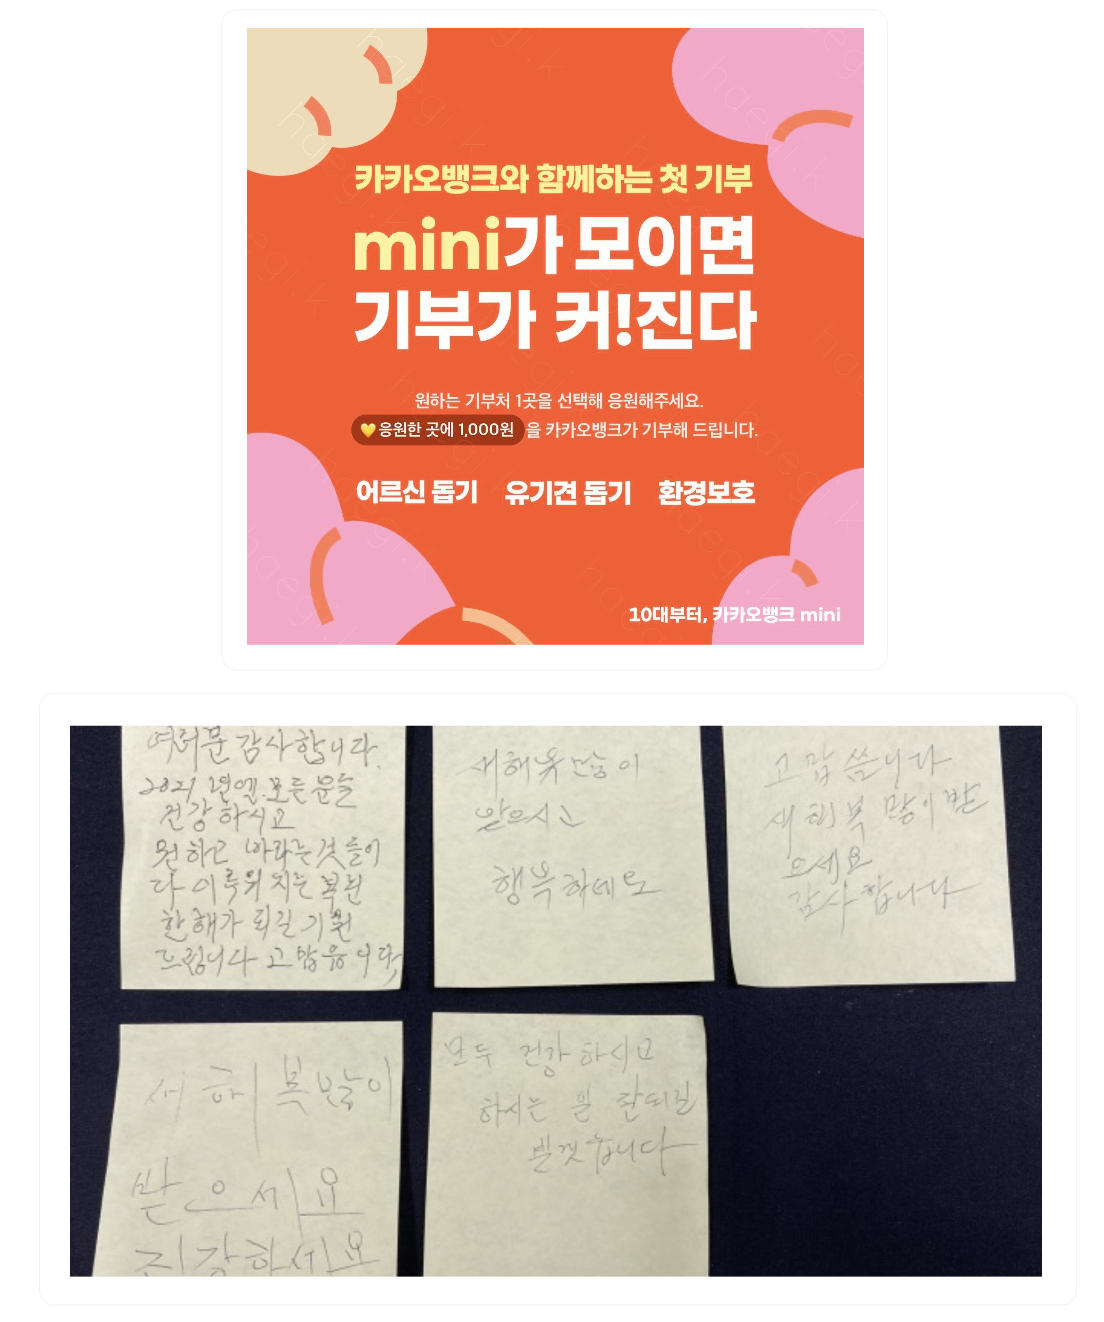 카카오뱅크와 함께하는 첫 기부
mini가 모이면
기부가 커!진다
원하는 기부처 1곳을 선택해 응원해주세요.
💛응원한 곳에 1,000원을 카카오뱅크가 기부해 드립니다.
어르신 돕기 유기견 돕기 환경보호
10대부터, 카카오뱅크 mini
여러분 감사합니다.
2021 년엔 모든 분들
건강 하시고
원하고 바라는것들이
다 이루워 지는 복된
한해가 되길 기원
드립니다
새해
행복하세요
고맙씀니다
새해 복 많이 받
으세요
감사합니다
새해 복많이
받으세요
건강하세요
모두 건강하시고
하시는 일
haegi.k